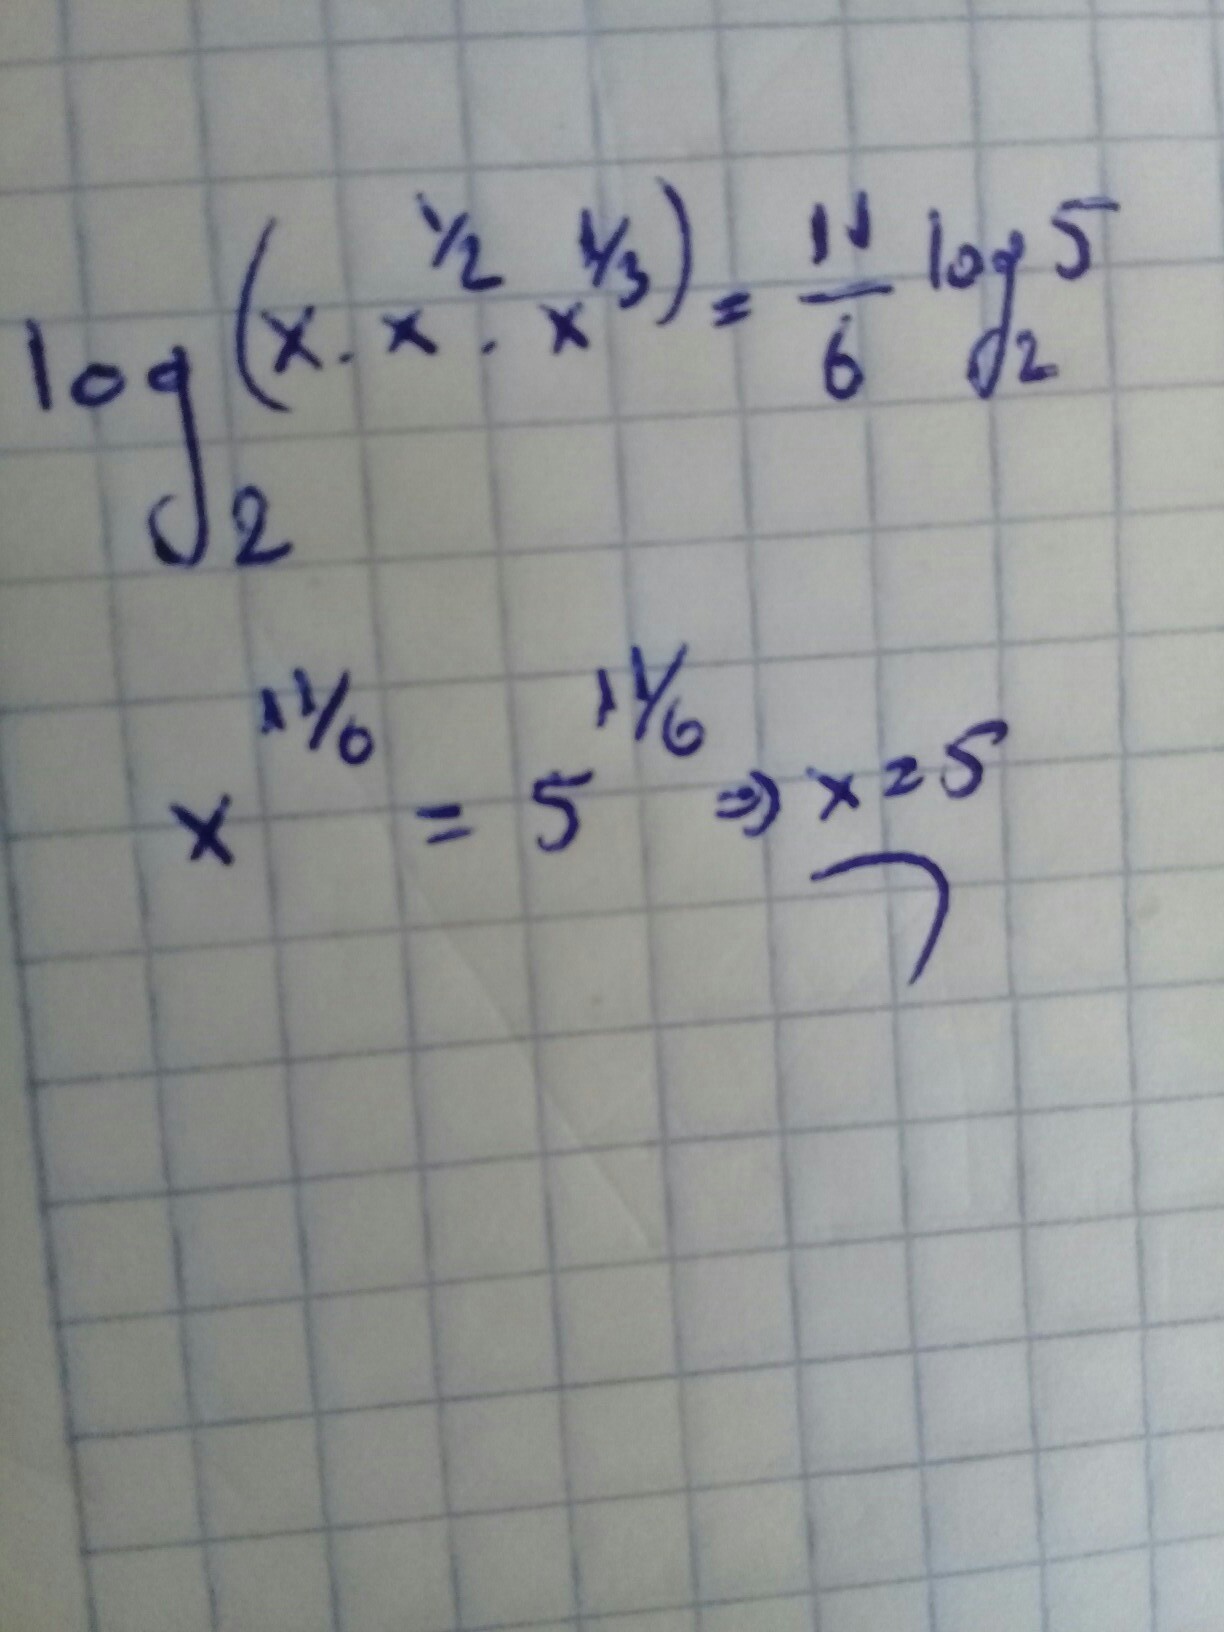 log₂(x · x^1/2 · x^1/3) = 11/6 log₂ 5
x^11/6 = 5^11/6 ⇒ x = 5